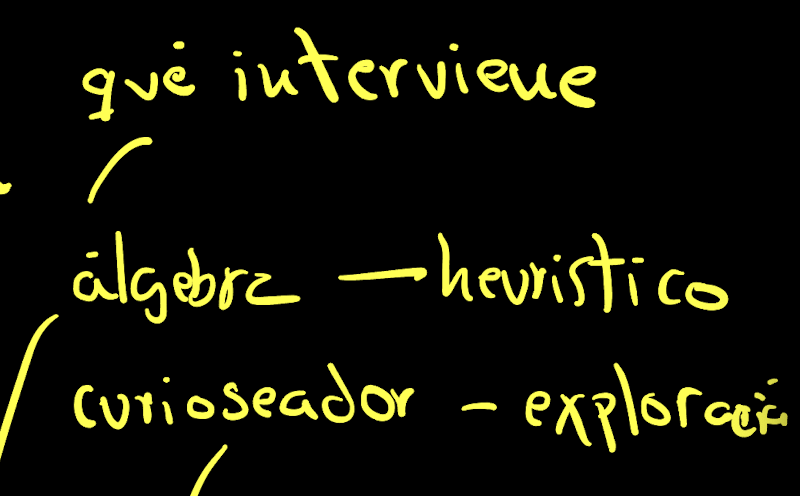 qué interviene
álgebra — heurístico
curioseador – exploración